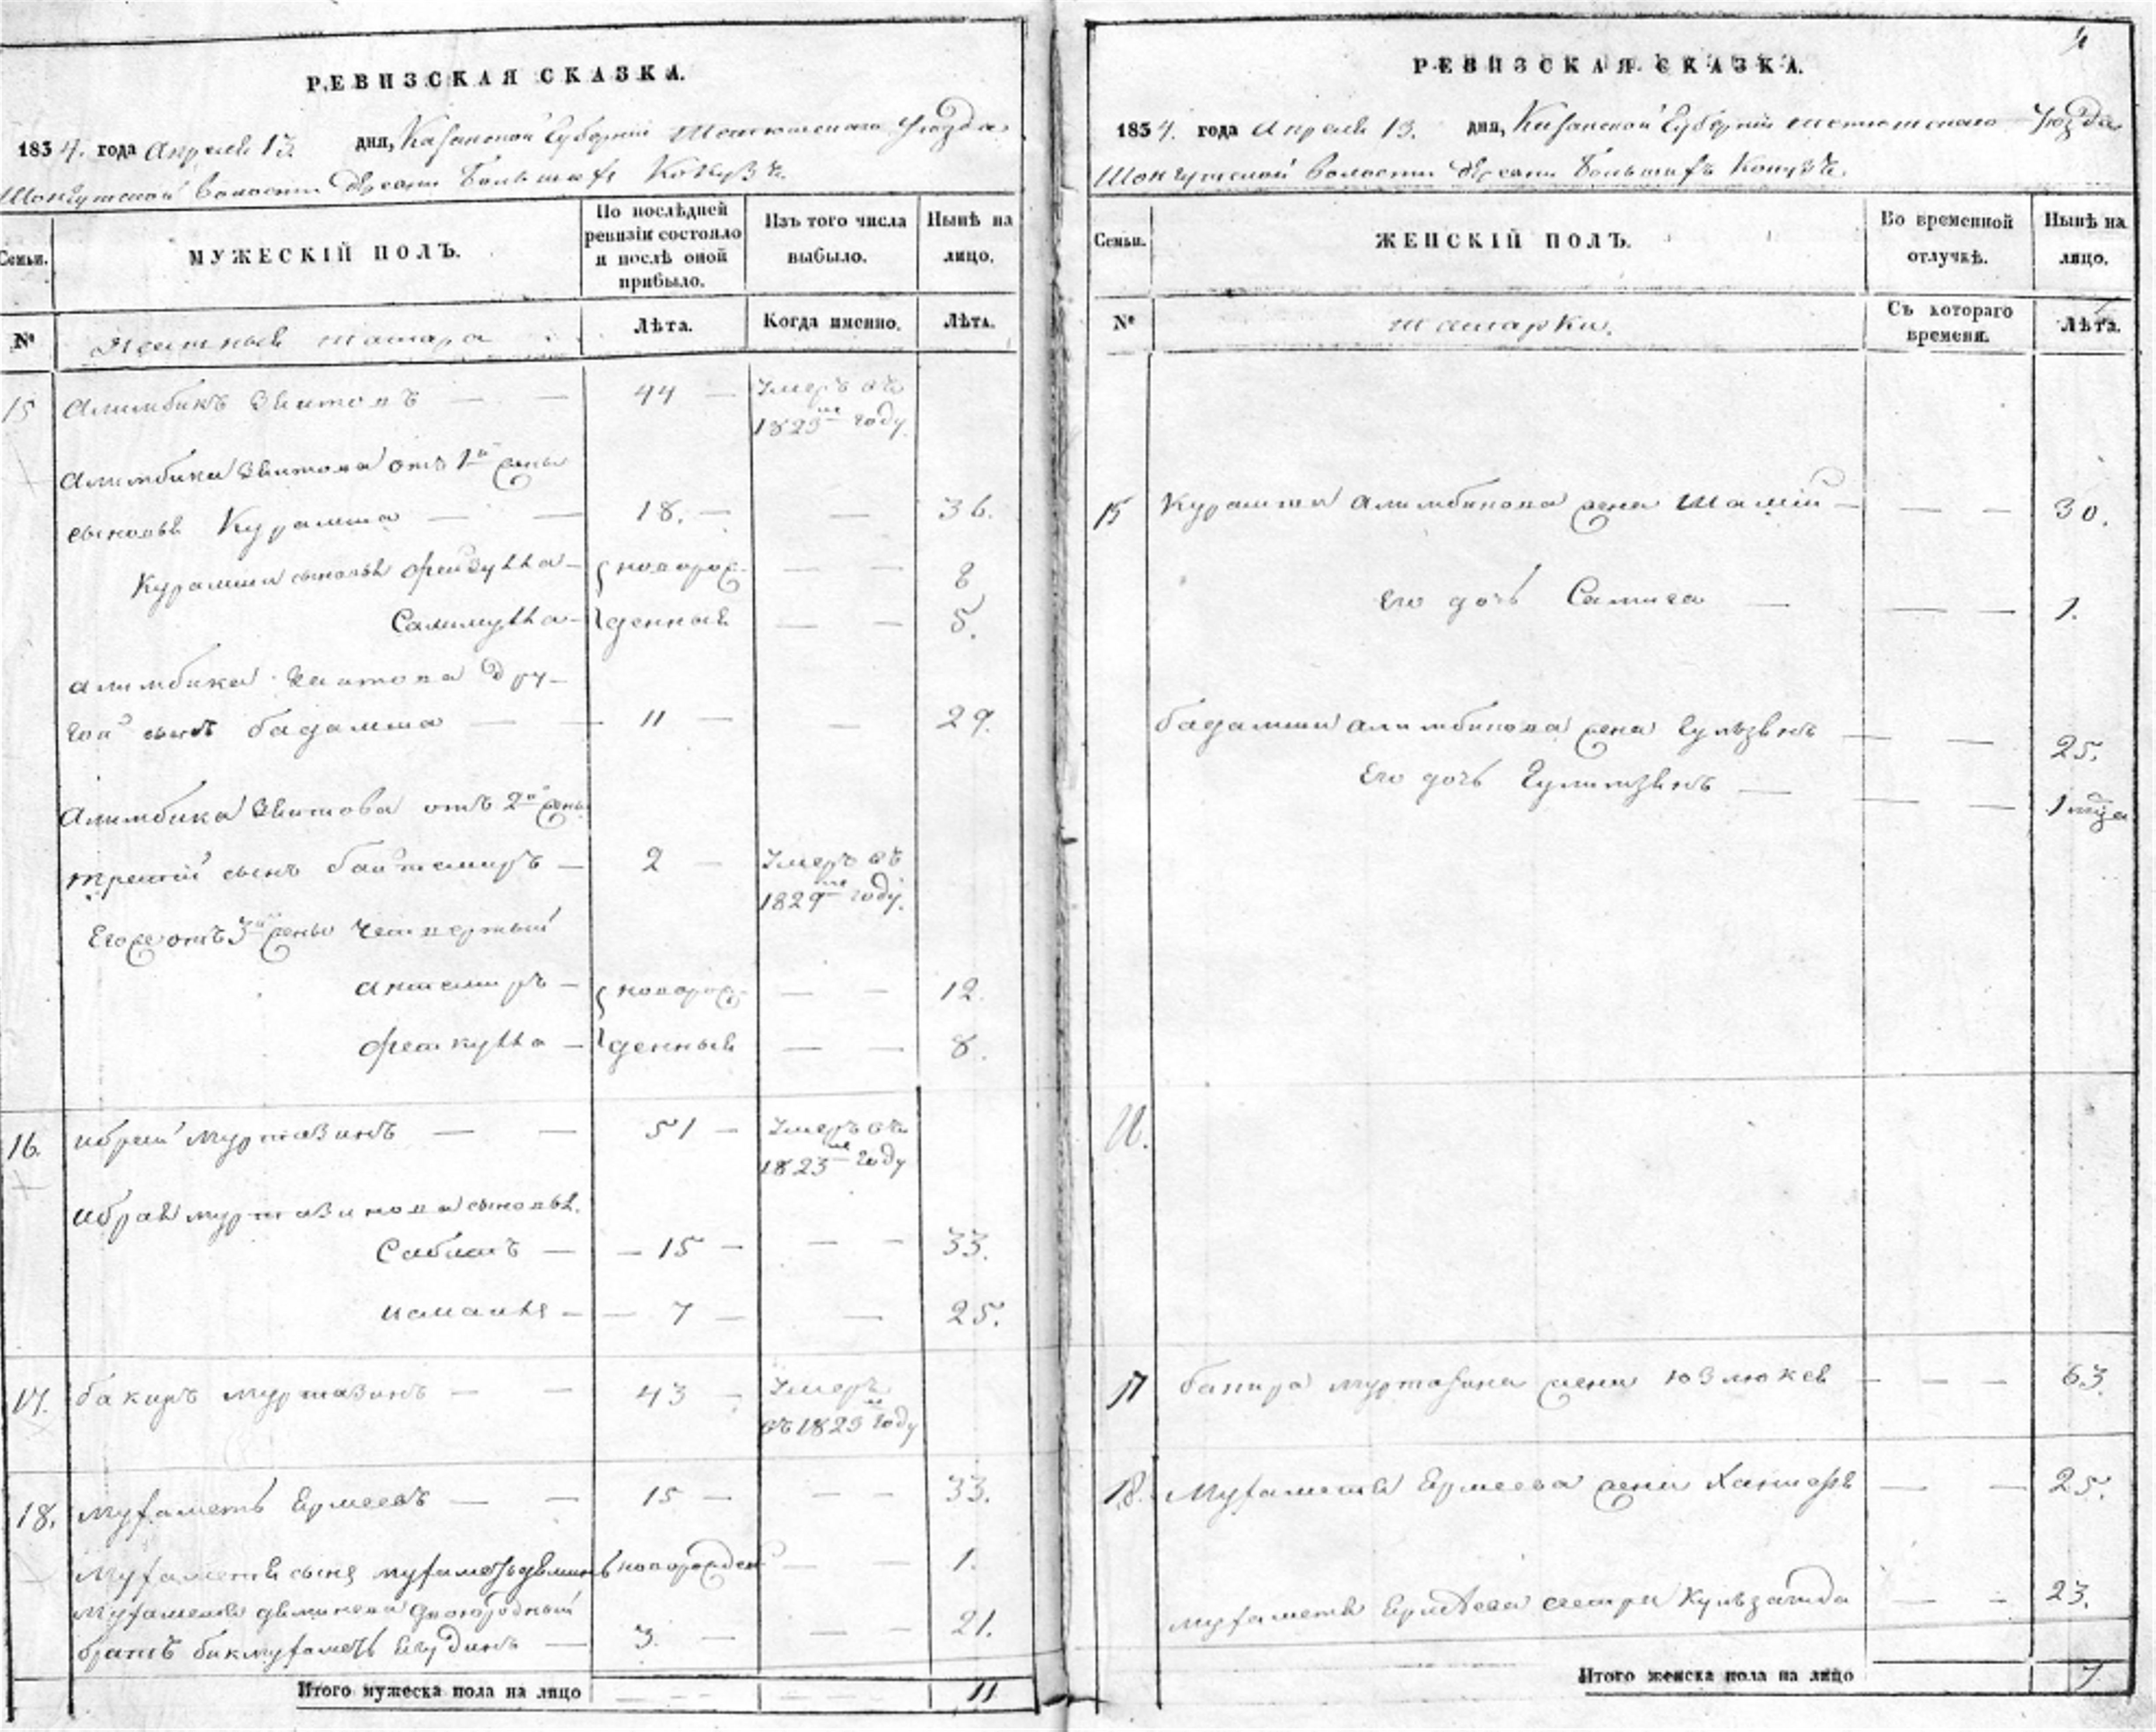 РЕВИЗСКАЯ СКАЗКА.
1834. года Апреля 13. дня, Казанской Губернiи Тетюшскаго Уѣзда
Шонгутской волости деревни Большихъ
Семьи.
МУЖЕСКIЙ ПОЛЪ.
По послѣдней ревизiи состояло и послѣ оной прибыло.
Изъ того числа выбыло.
Нынѣ на лицо.
№
татара
Лѣта.
Когда именно.
Лѣта.
15 Алимбикъ — — 44 — Умеръ въ
1823м году.
Алимбика от 1й жены
сыновья Курамша — — 18. — — 36.
Курамши сыновья Фейзулла — новорож- — — 8
Салимулла — денныя — — 5.
Алимбика дру-
гой сынъ Бадамша — — 11 — — 29.
Алимбика отъ 2й жены
третiй сынъ Байтемиръ — 2 — Умеръ въ
1829м году.
Егоже отъ 3й жены четвертый
Антемиръ — новорож- — — 12.
Феткулла — денныя — — 8.
16. Ибрай Муртазинъ — — 51 — Умеръ въ
1823м году
Ибрая Муртазинова сыновья.
— 15 — — — 33.
— — 7 — — 25.
17. Бакиръ Муртазинъ — — 43 — Умеръ
въ 1823м году
18. Мухаметь Ермеевъ — — 15 — — — 33.
Мухаметя сынъ новорожден — — 1.
Мухаметя двоюродный
братъ Бикмухаметь — 3. — — — 21.
Итого мужеска пола на лицо — — — 11
4
РЕВИЗСКАЯ СКАЗКА.
1834. года Апреля 13. дня, Казанской Губернiи Тетюшскаго Уѣзда
Шонгутской волости деревни Большихъ
Семьи.
ЖЕНСКIЙ ПОЛЪ.
Во временной отлучкѣ.
Нынѣ на лицо.
№
татарки.
Съ котораго времени.
Лѣта.
15 Курамши Алимбикова жена — — — 30.
Его дочь — — — 1.
Бадамши Алимбикова жена — — 25.
Его дочь — — — 1
17 Бакира Муртазина жена Юзлюкей — — — 63.
18. Мухаметя Ермеева жена — — 25.
Мухаметя Ермеева сестра — — 23.
Итого женска пола на лицо 7